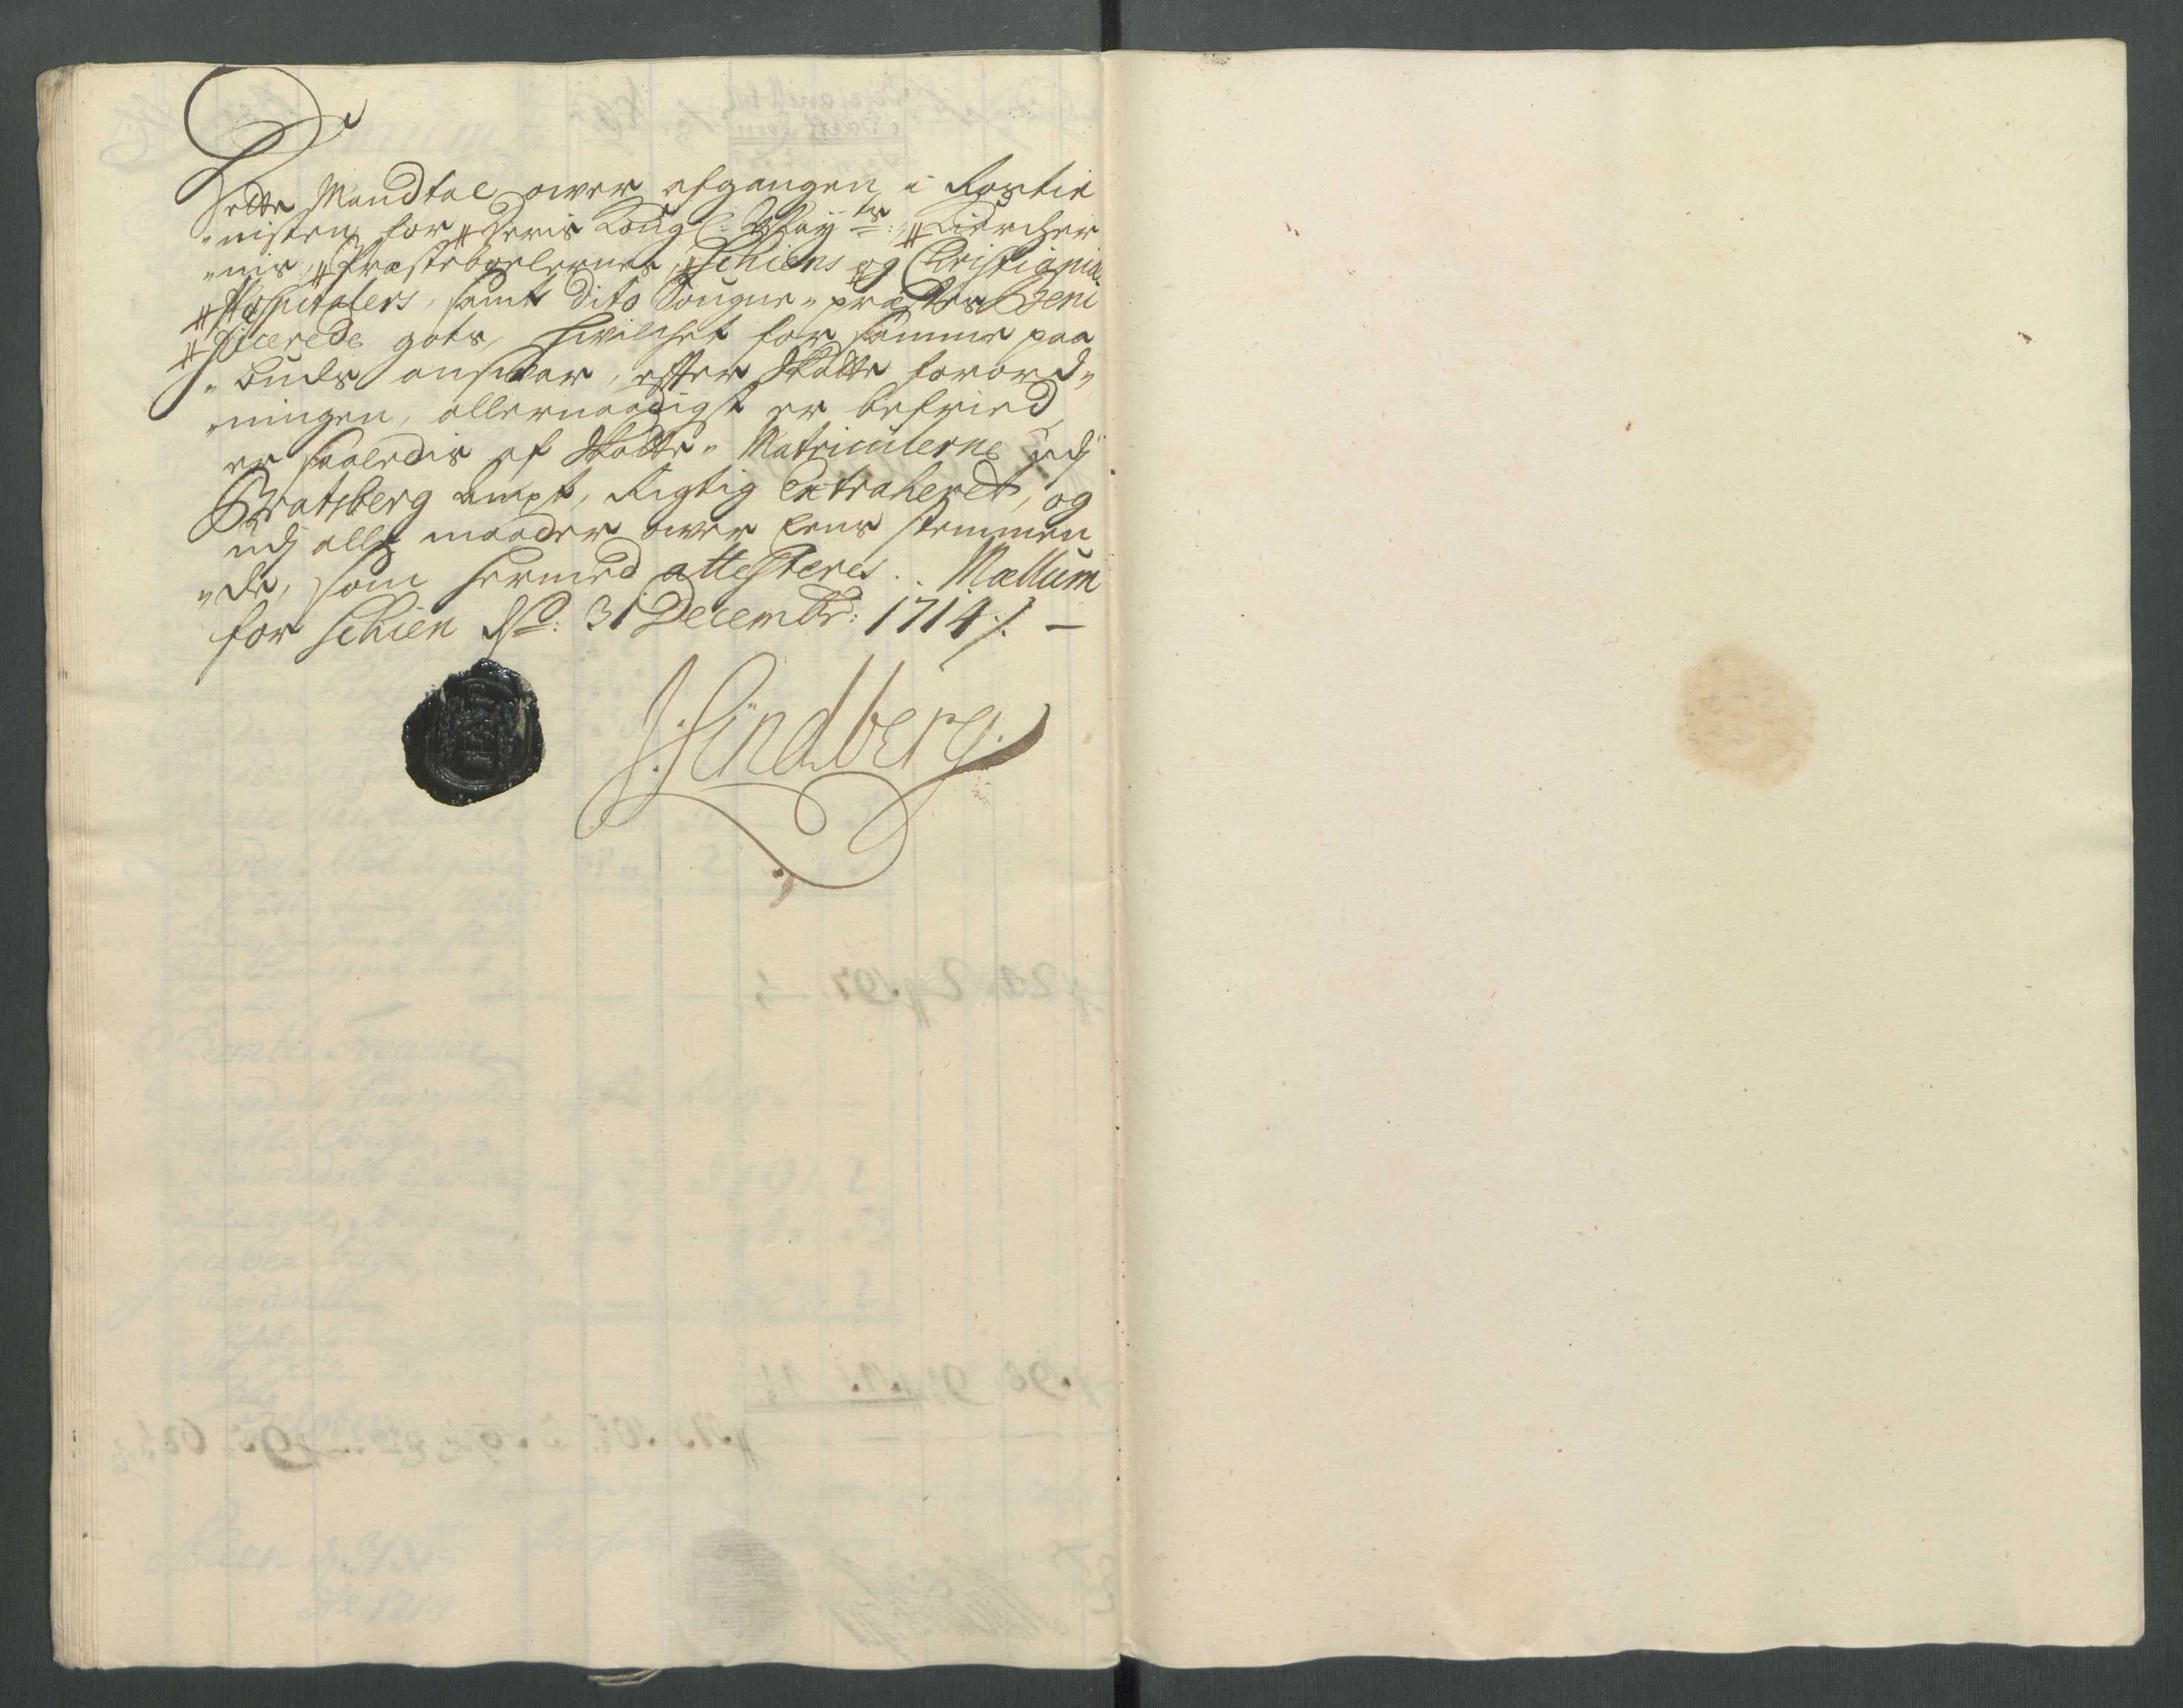 Dette Mandtal over afgangen i Rostie
"nisten for Deris Kongl: May:ts Kiercher
"nis, Præsteboelernes, Schiens og Christiania
Hospitalers, samt dito Sougne-præsters Beni
ficerede gots, hvilchet for samme paa
"buds ansvar, efter Skatte forord"
"ningen, allernaadigst er befried,
er saaledis af Skatte-Matriculerne udj
Bratsberg ampt, Rigtig Extraheret, og
udj alle maader over Eens stemmen
"de, som hermed attesteres. Mællum
for Schien dd: 31 Decembr: 1714 /. —
J: Lindberg.